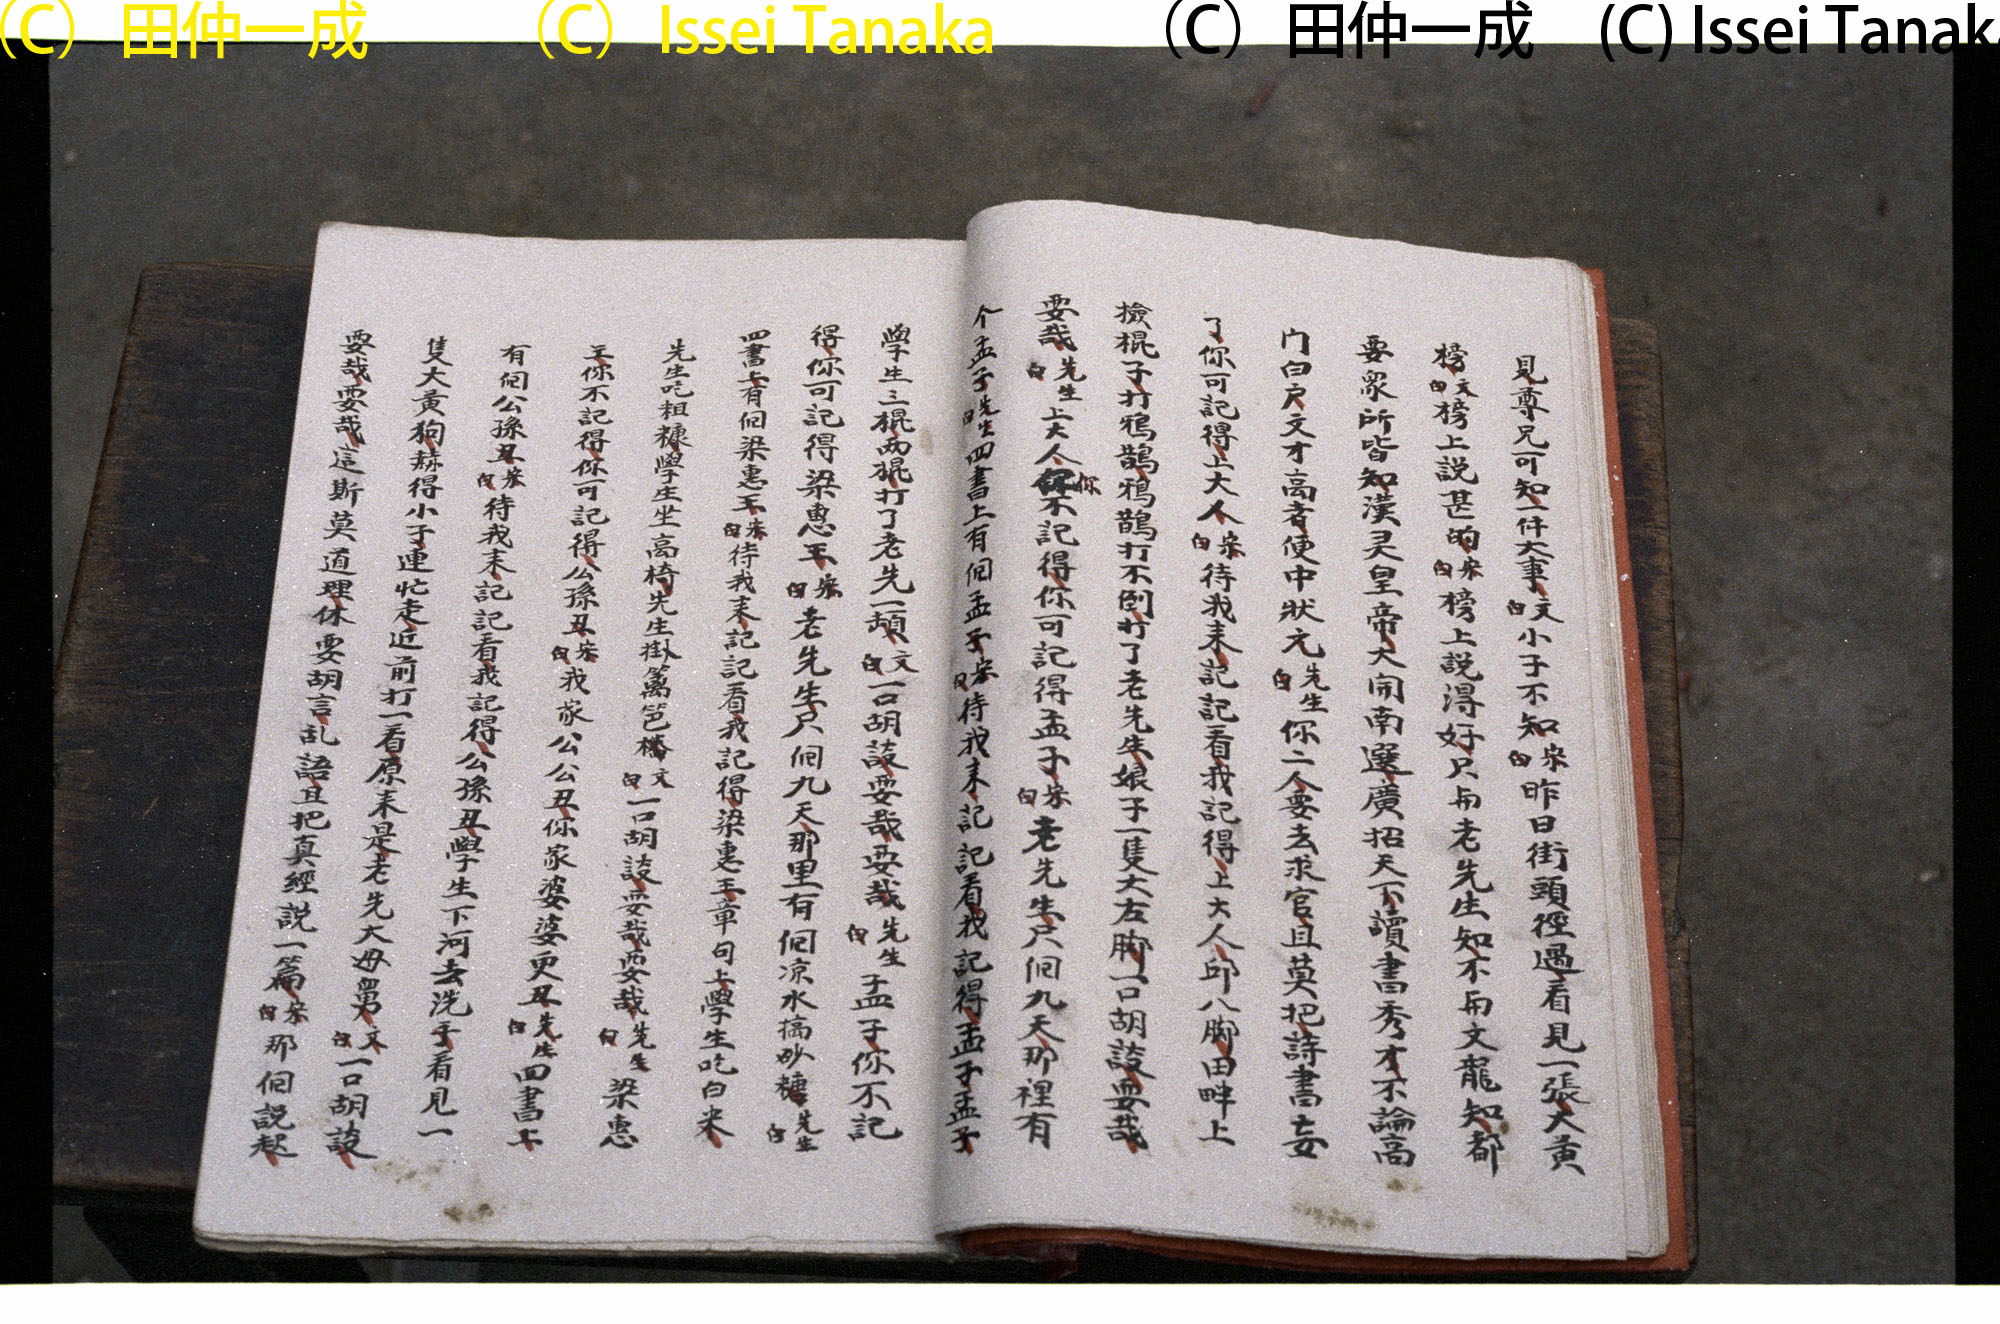 (C) 田仲一成 (C) Issei Tanaka (C) 田仲一成 (C) Issei Tanak
見尊兄可知一件大事文白小子不知宋白昨日街頭徑過看見一張大黄
榜文白榜上説甚的宋白榜上説得好只有老先生知不有文龍知都
要衆所皆知漢灵皇帝大開南選廣招天下讀書秀才不論高
门白户文才高者便中狀元先生白你二人要去求官且莫把詩書妄
了你可記得上大人宋白待我来記記看我記得上大人邱八脚田畔上
撿棍子打鴉鵲鴉鵲打不倒打了老先生娘子一隻大左脚一口胡談耍哉
耍哉先生白上大人你不記得你可記得孟子宋白老先生尺個九天那裡有
个孟子先生白四書上有個孟子宋白待我来記記看我記得孟子孟子
學生三棍両棍打了老先一頭文白一口胡談耍哉耍哉先生白孟子你不記
得你可記得梁惠王宋白老先生尺個九天那里有個凉水搞砂糖先生白
四書上有個梁惠王宋白待我来記記看我記得梁惠王章句上學生吃白米
先生吃粗糠學生坐高椅先生掛籬笆樁文白一口胡談耍哉耍哉先生白梁惠
王你不記得你可記得公孫丑宋白我家公公丑你家婆婆更丑先生白四書上
有個公孫丑宋白待我来記記看我記得公孫丑學生下河去洗手看見一
隻大黄狗赫得小子連忙走近前打一看原来是老先大母舅文白一口胡談
耍哉耍哉這斯莫道理休要胡言乱語且把真經説一篇宋白那個説起